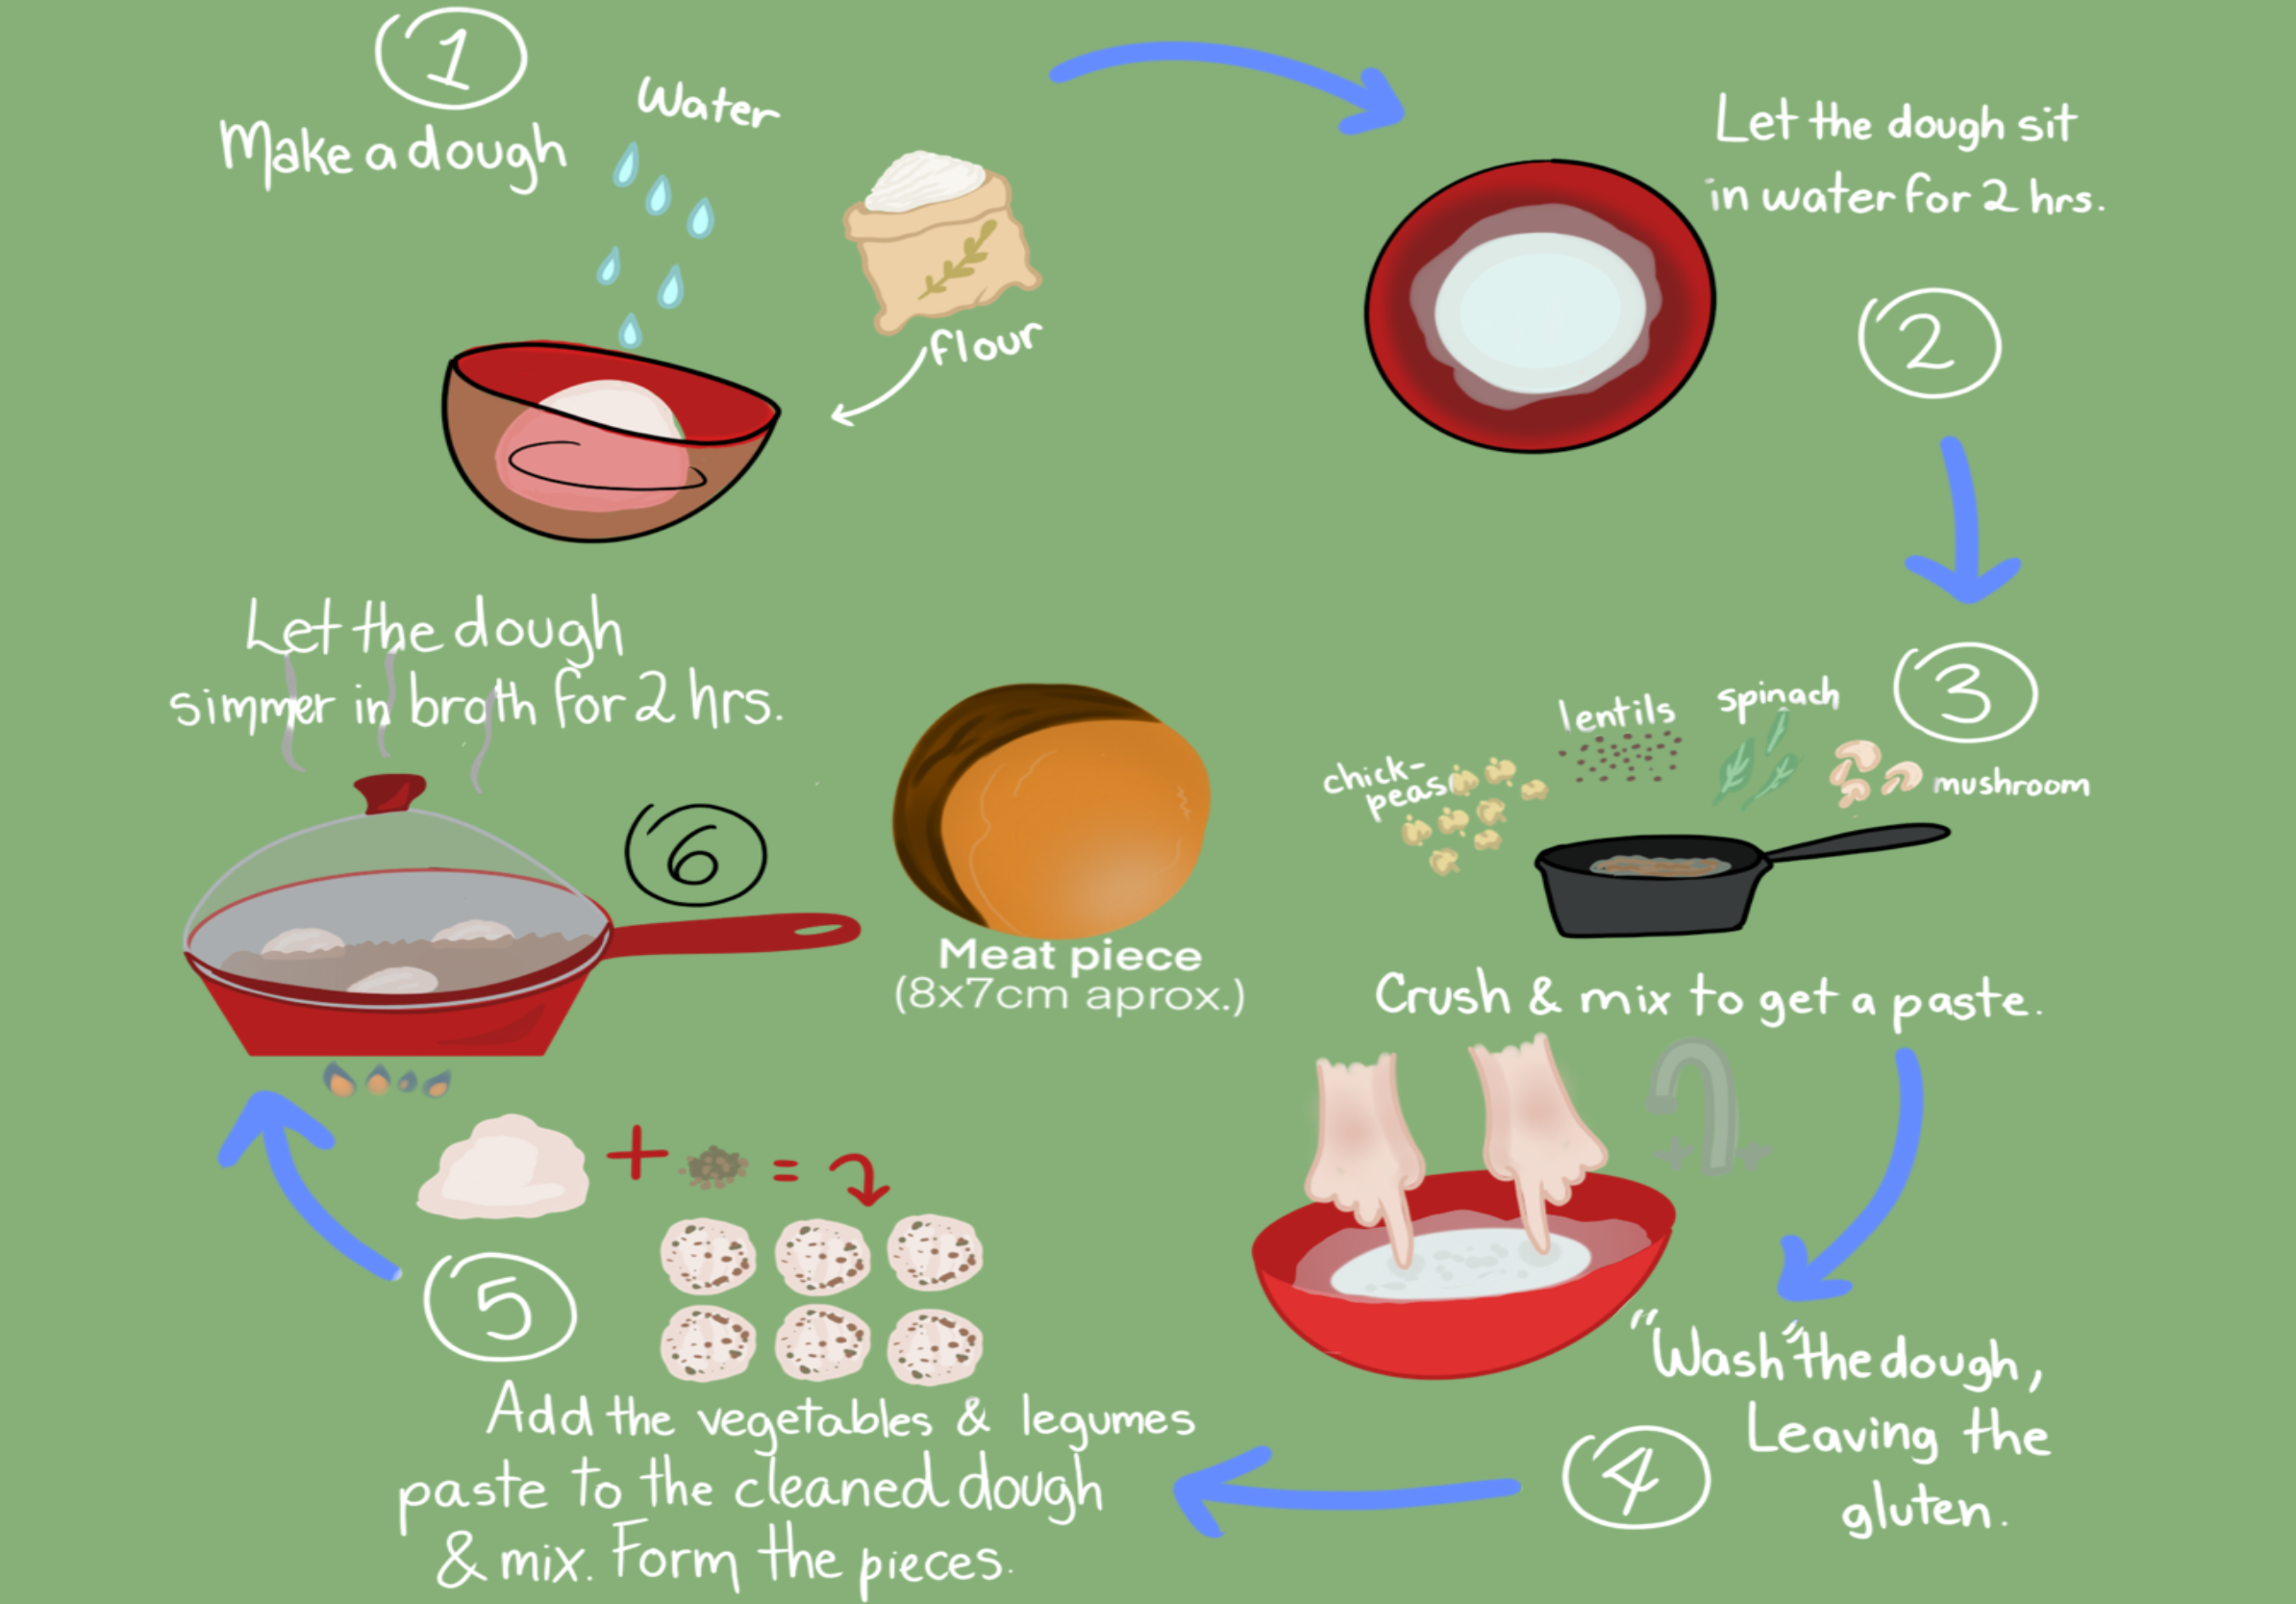 1
Make a dough
Water
flour
Let the dough sit
in water for 2 hrs.
2
3
chick-
peas
lentils
spinach
mushroom
Crush & mix to get a paste.
"Wash" the dough,
Leaving the
gluten.
4
+ =
5
Add the vegetables & legumes
paste to the cleaned dough
& mix. Form the pieces.
Let the dough
simmer in broth for 2 hrs.
6
Meat piece
(8x7cm aprox.)